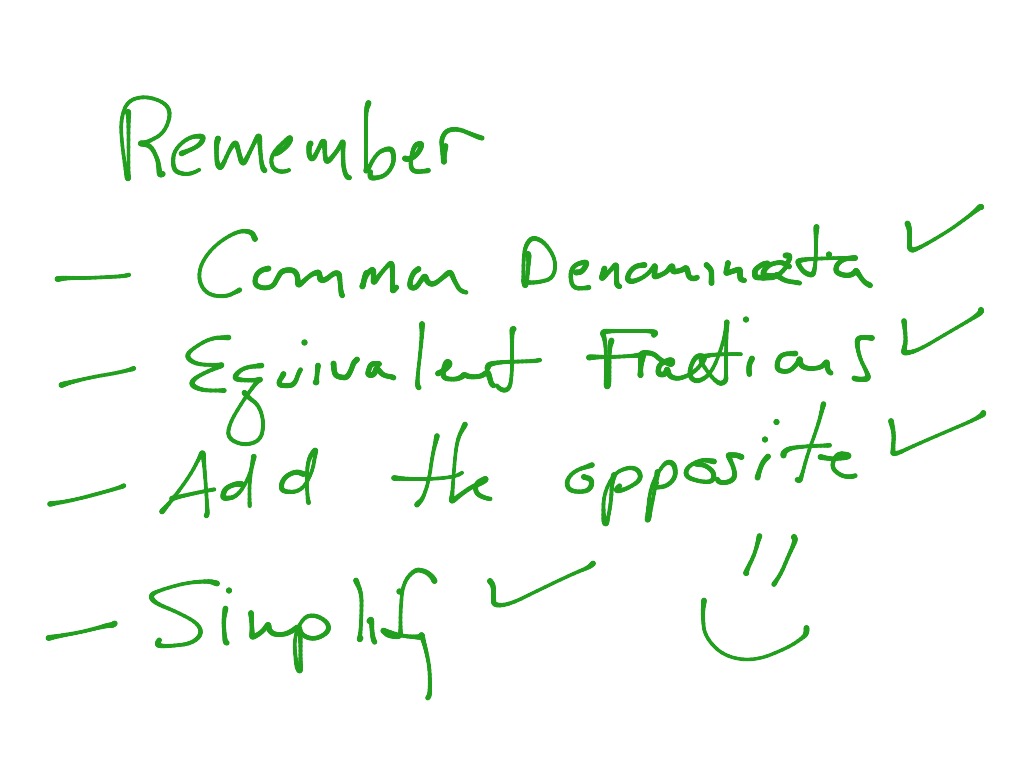 Remember
- Common Denominator ✓
- Equivalent Fractions ✓
- Add the opposite ✓
- Simplify ✓